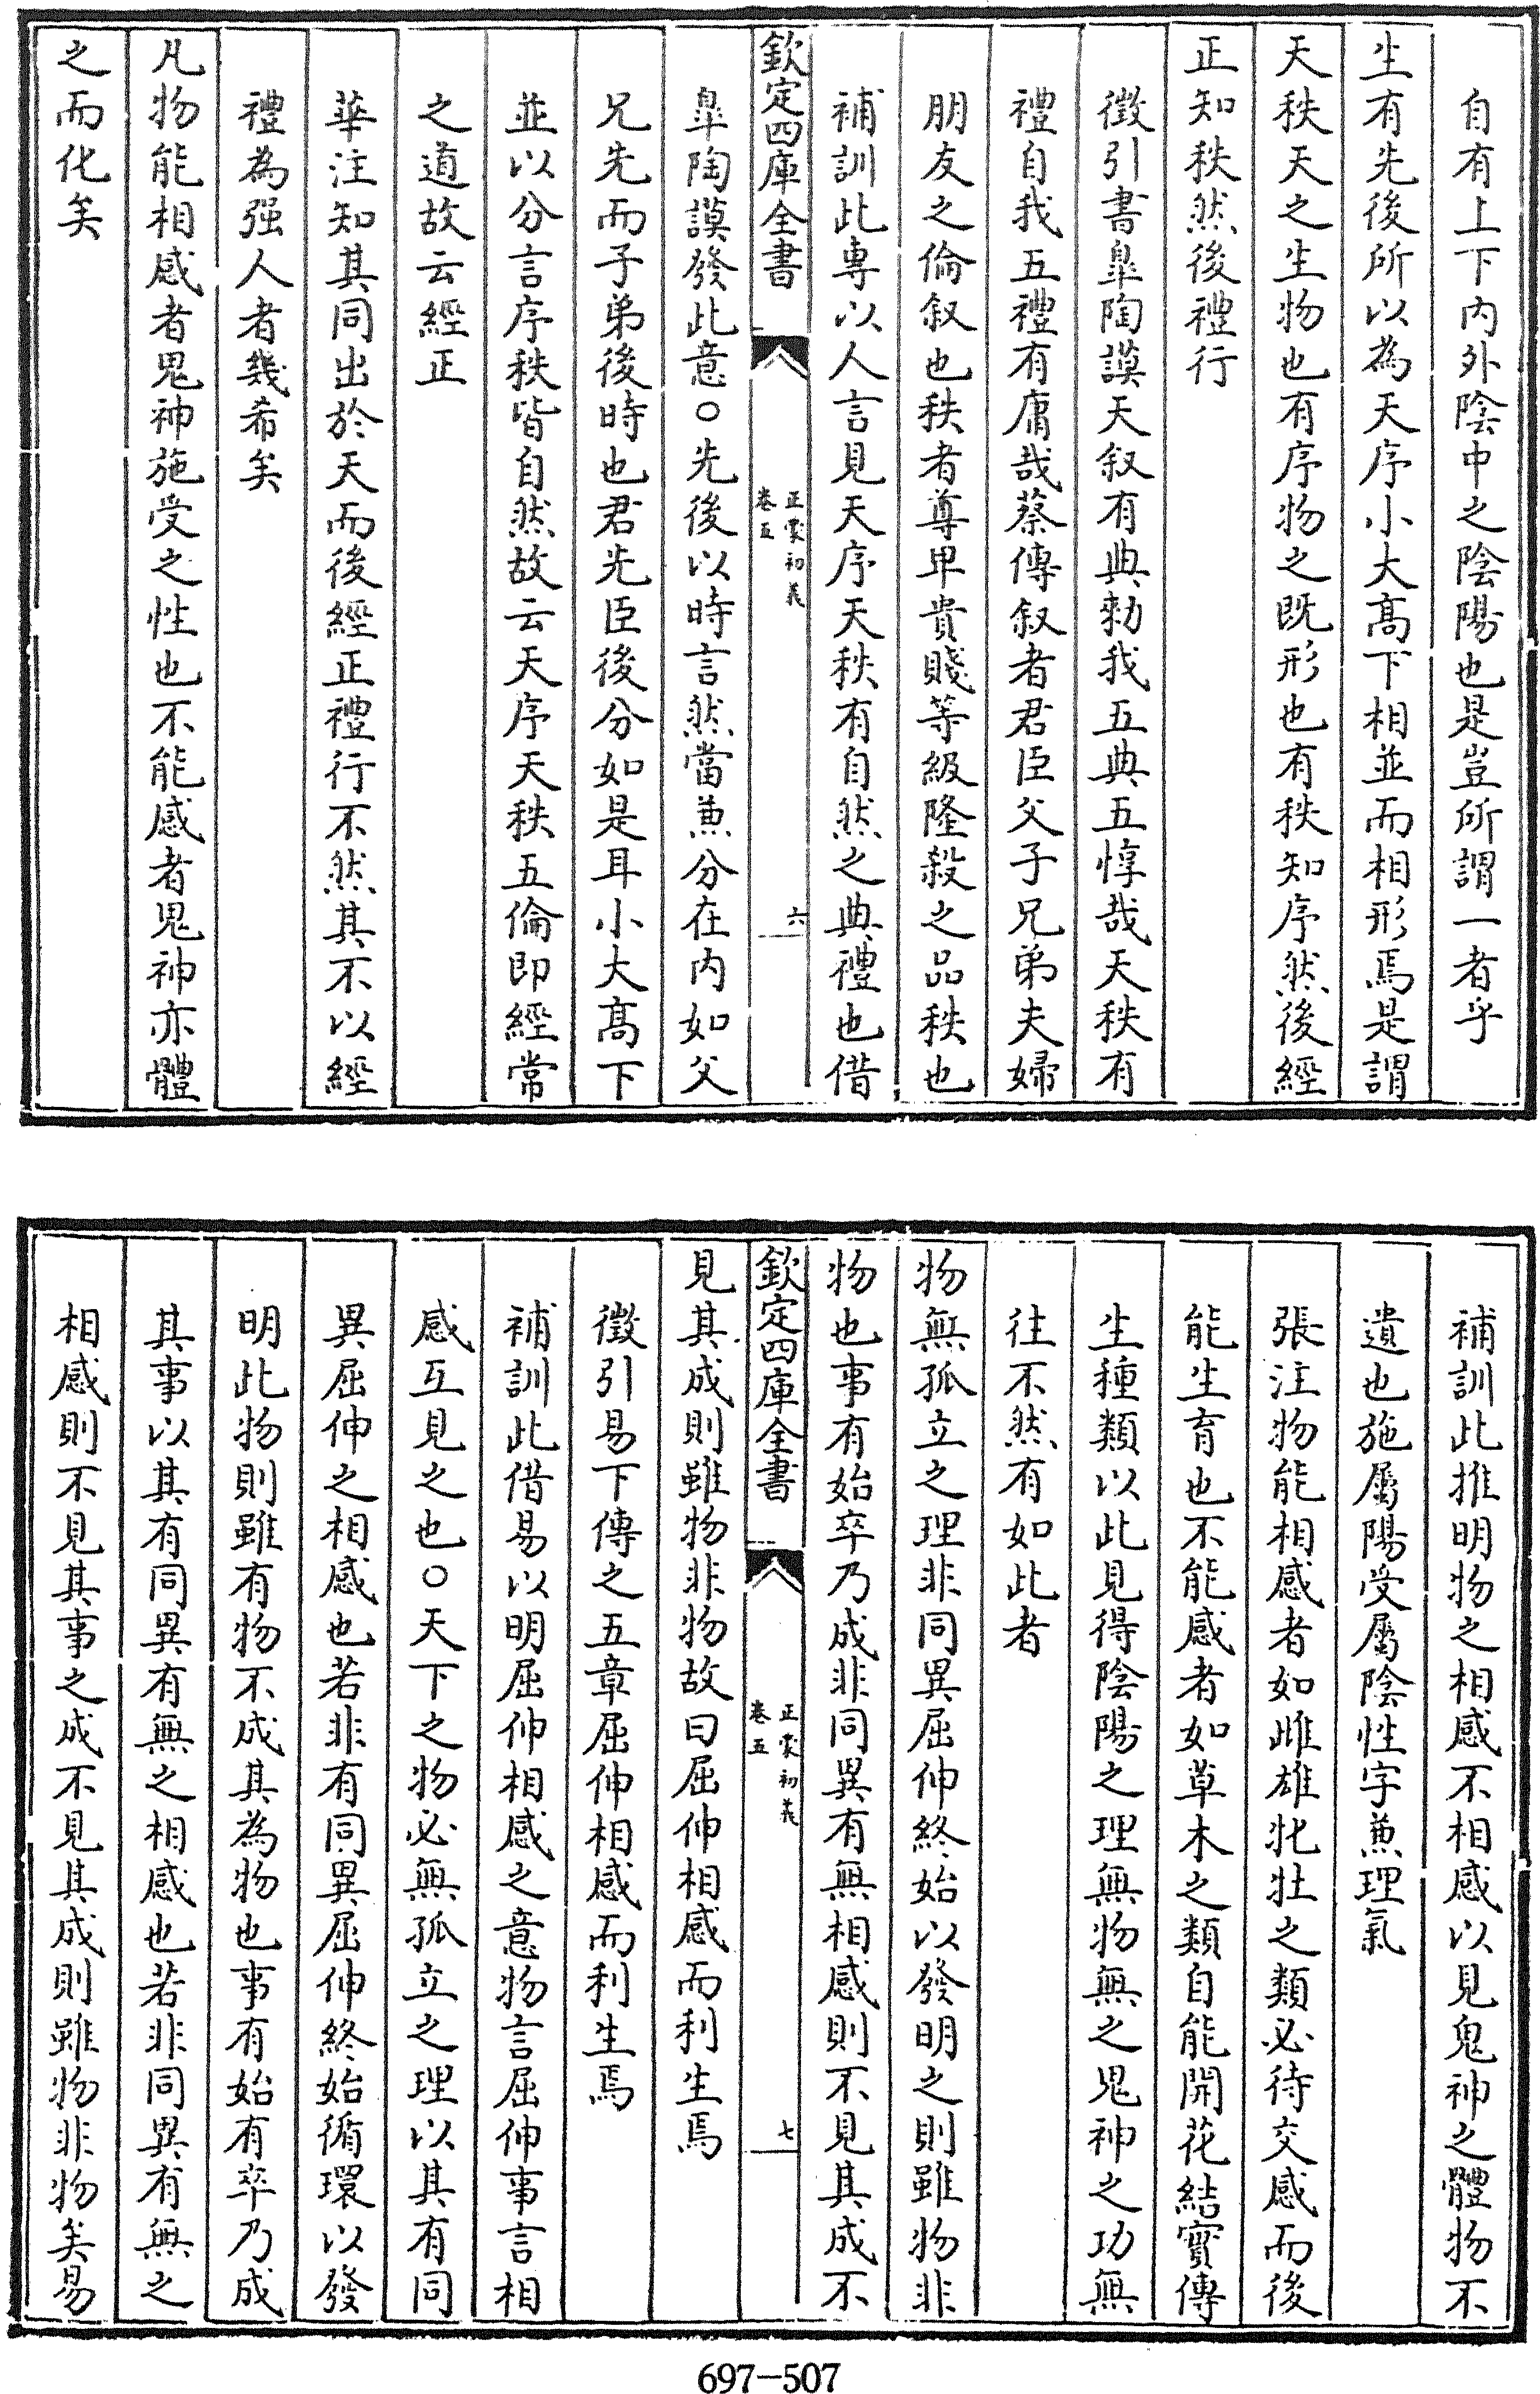 自有上下内外陰中之陰陽也是豈所謂一者乎
生有先後所以為天序小大髙下相並而相形焉是謂
天秩天之生物也有序物之既形也有秩知序然後經
正知秩然後禮行
徴引書臯陶謨天叙有典勅我五典五惇哉天秩有
禮自我五禮有庸哉蔡傳叙者君臣父子兄弟夫婦
朋友之倫叙也秩者尊卑貴賤等級隆殺之品秩也
補訓此專以人言見天序天秩有自然之典禮也借
欽定四庫全書
正蒙初義
卷五
六
臯陶謨發此意○先後以時言然當兼分在内如父
兄先而子弟後時也君先臣後分如是耳小大髙下
並以分言序秩皆自然故云天序天秩五倫即經常
之道故云經正
華注知其同出於天而後經正禮行不然其不以經
禮為强人者幾希矣
凡物能相感者鬼神施受之性也不能感者鬼神亦體
之而化矣
補訓此推明物之相感不相感以見鬼神之體物不
遺也施屬陽受屬陰性字兼理氣
張注物能相感者如雌雄牝牡之類必待交感而後
能生育也不能感者如草木之類自能開花結實傳
生種類以此見得陰陽之理無物無之鬼神之功無
往不然有如此者
物無孤立之理非同異屈伸終始以發明之則雖物非
物也事有始卒乃成非同異有無相感則不見其成不
欽定四庫全書
正蒙初義
卷五
七
見其成則雖物非物故曰屈伸相感而利生焉
徴引易下傳之五章屈伸相感而利生焉
補訓此借易以明屈伸相感之意物言屈伸事言相
感互見之也○天下之物必無孤立之理以其有同
異屈伸之相感也若非有同異屈伸終始循環以發
明此物則雖有物不成其為物也事有始有卒乃成
其事以其有同異有無之相感也若非同異有無之
相感則不見其事之成不見其成則雖物非物矣易
697-507